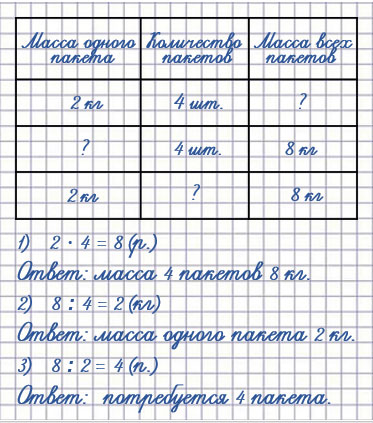 Масса одного пакета Количество пакетов Масса всех пакетов
2 кг 4 шт. ?
? 4 шт. 8 кг
2 кг ? 8 кг
1) 2 · 4 = 8 (р.)
Ответ: масса 4 пакетов 8 кг.
2) 8 : 4 = 2 (кг)
Ответ: масса одного пакета 2 кг.
3) 8 : 2 = 4 (п.)
Ответ: потребуется 4 пакета.